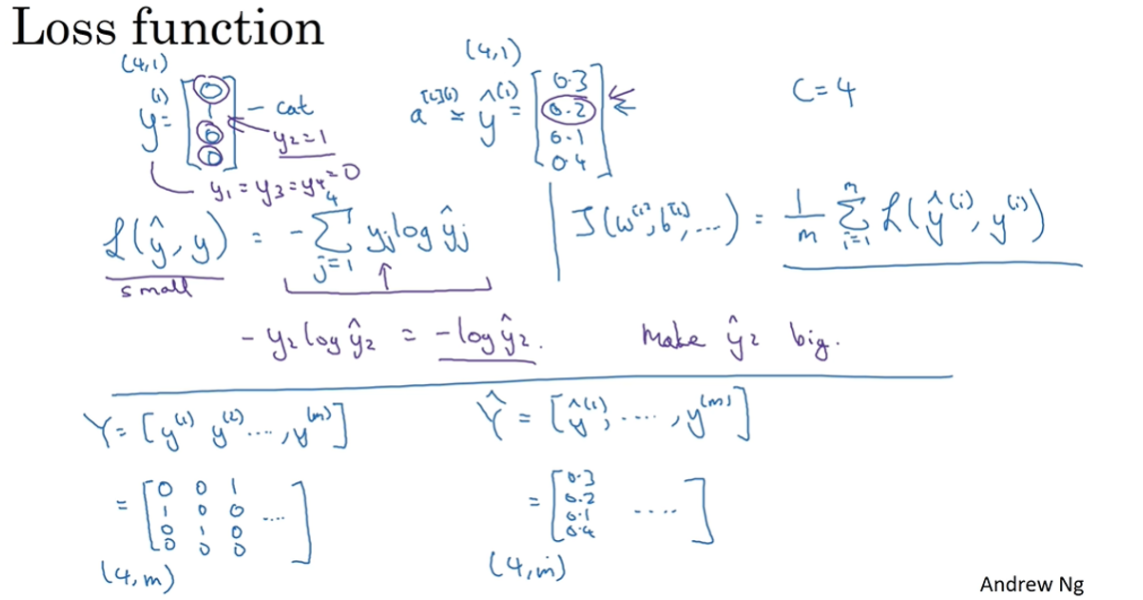 Loss function
(4,1)
y^(1) = [0 1 0 0] - cat
y₂=1
y₁ = y₃ = y₄ = 0
(4,1)
a^[L](1) ≈ ŷ^(1) = [0.3 0.2 0.1 0.4]
C=4
L(ŷ, y) = - Σ_{j=1}^{4} yⱼ log ŷⱼ
small
J(w^[1], b^[1], ...) = 1/m Σ_{i=1}^{m} L(ŷ^(i), y^(i))
- y₂ log ŷ₂ = - log ŷ₂.
Make ŷ₂ big.
Y = [y^(1) y^(2) ...., y^(m)]
= [0 0 1
1 0 0 ....
0 1 0
0 0 0]
(4,m)
Ŷ = [ŷ^(1), ...., y^(m)]
= [0.3
0.2 ....
0.1
0.4]
(4,m)
Andrew Ng